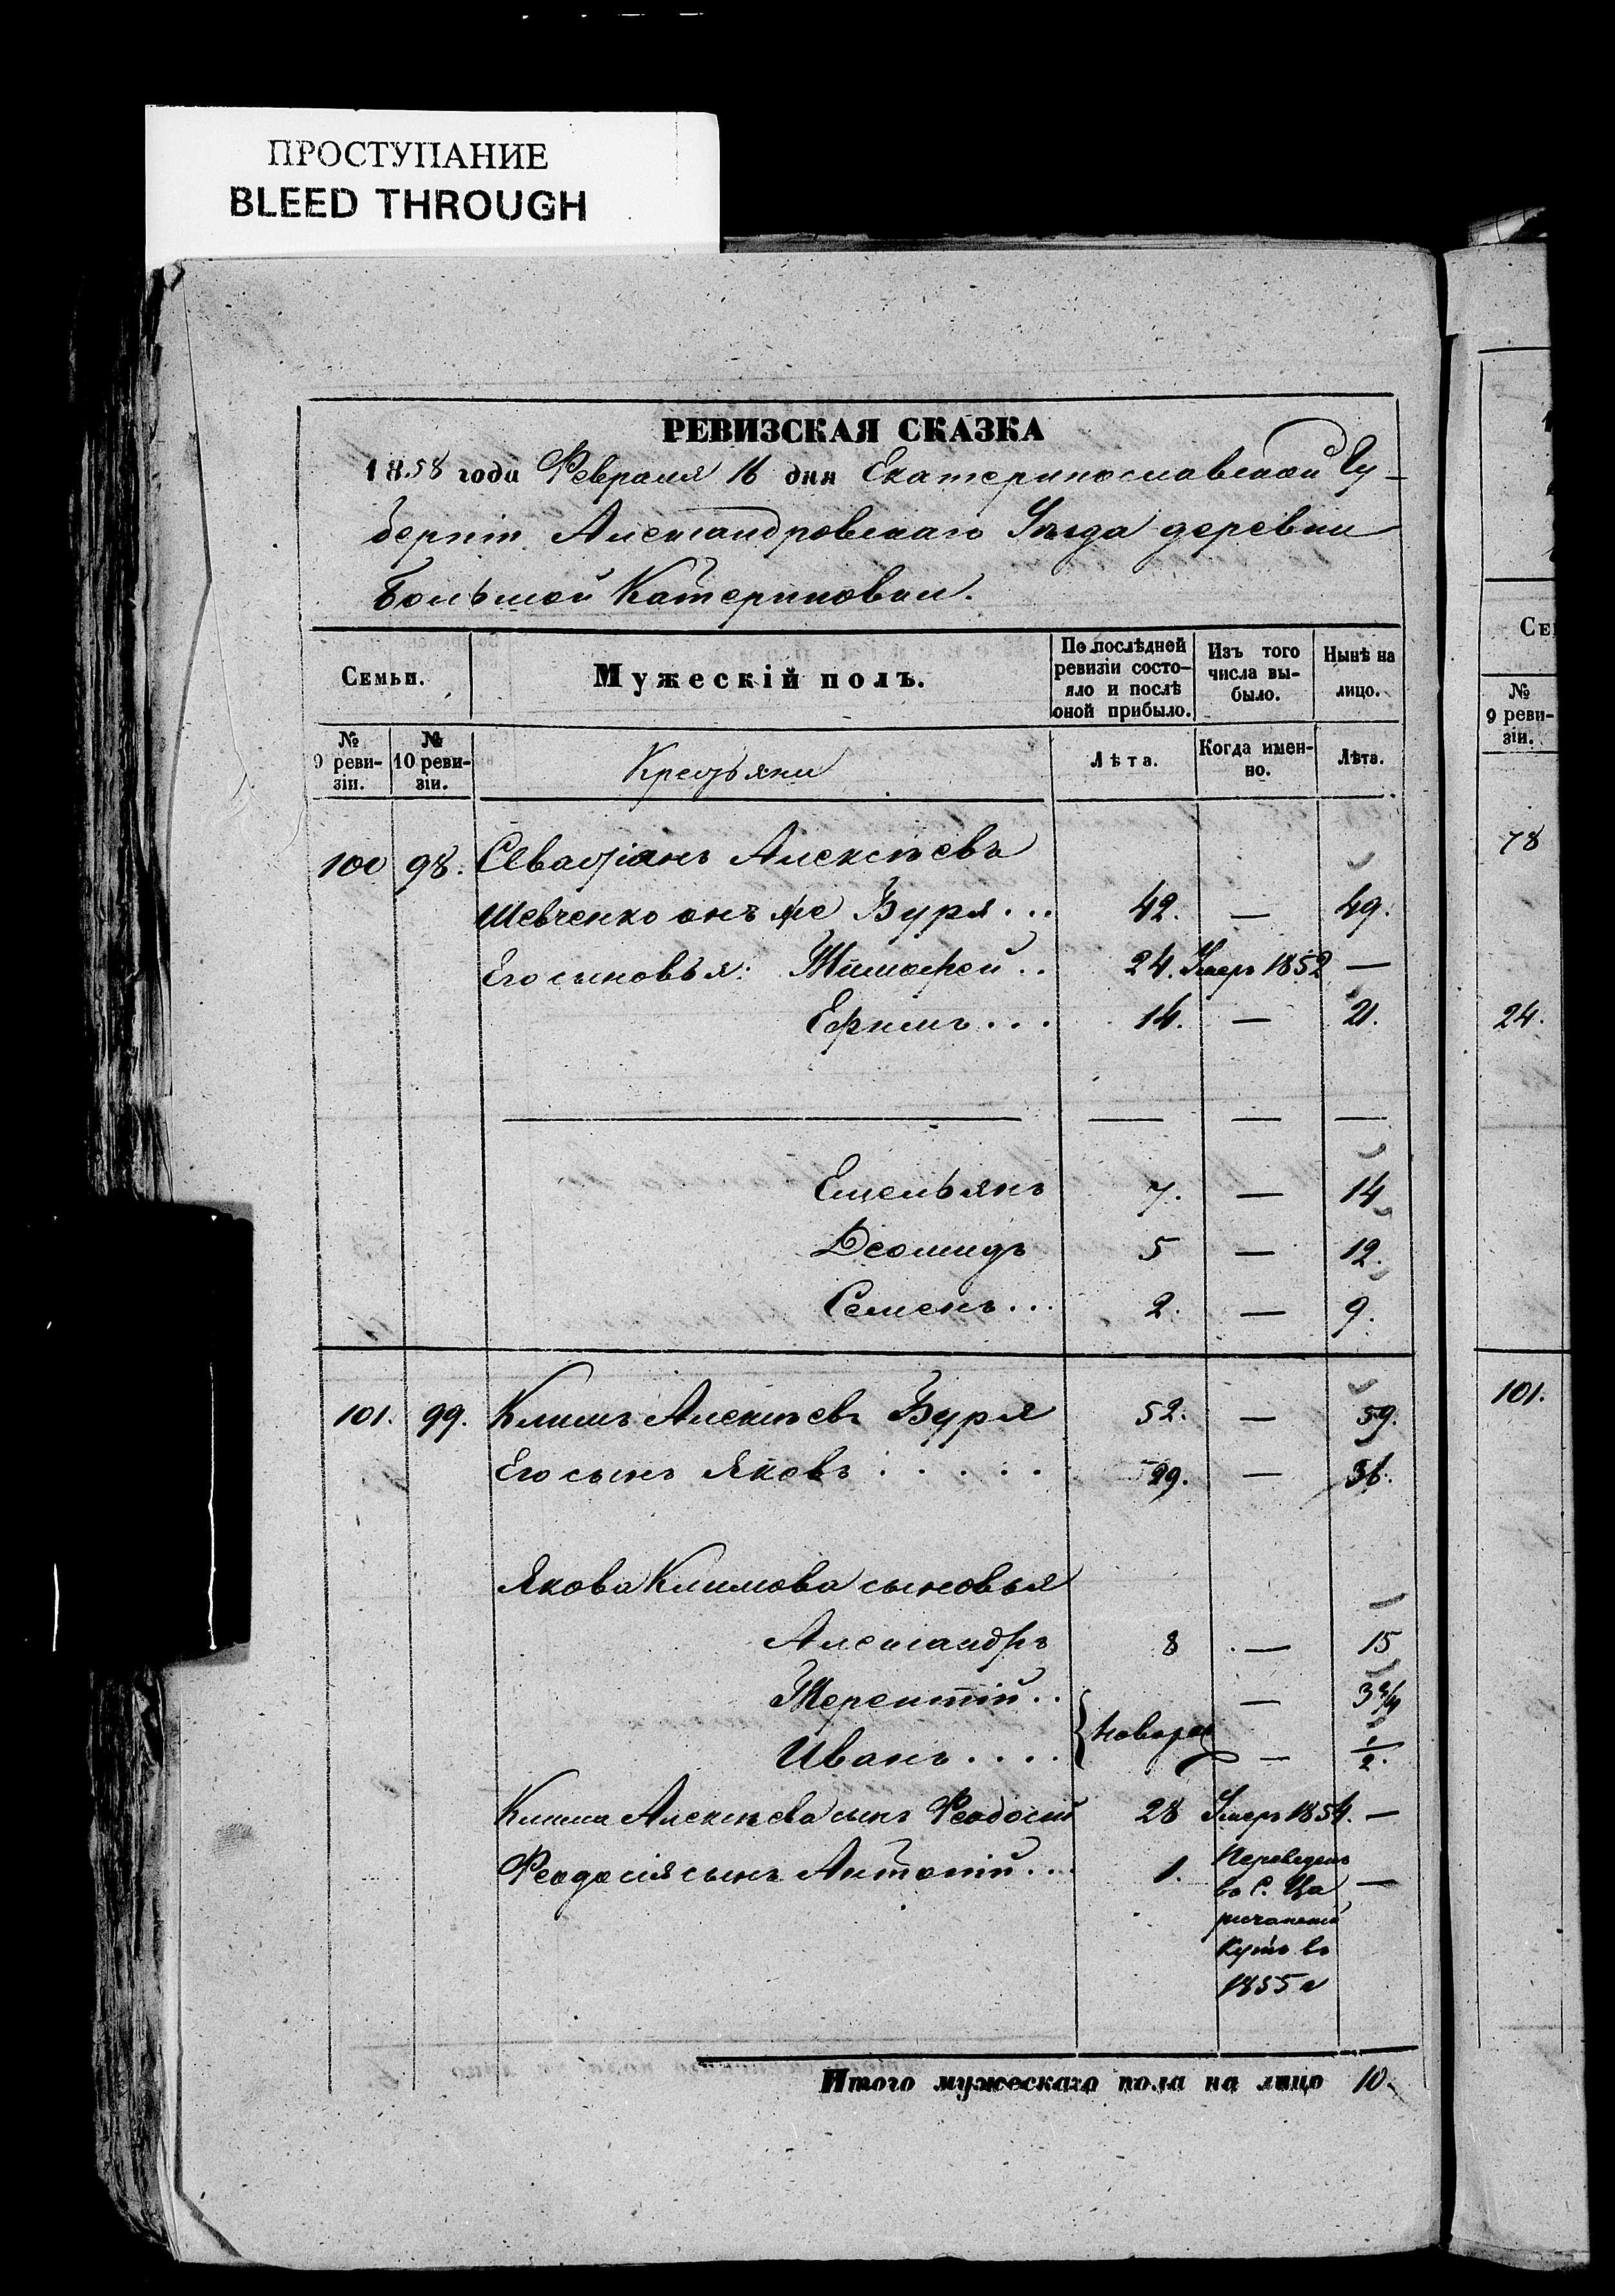 ПРОСТУПАНИЕ
BLEED THROUGH
РЕВИЗСКАЯ СКАЗКА
1858 года Февраля 16 дня Екатеринославской Гу-
берніи Александровскаго Уѣзда деревни
Большой Катериновки.
Семьи. Мужескій полъ. По послѣдней ревизіи состо-яло и послѣ оной прибыло. Изъ того числа вы-было. Нынѣ на лицо.
№ 9 реви-зіи. № 10 реви-зіи. Крестьяни Лѣта. Когда имен-но. Лѣта.
100 98. Севастіанъ Алексѣевъ
Шевченко онъ же Буря... 42. — 49.
Его сыновья: Тимофей.. 24. Умеръ 1852 —
Ефимъ... 14. — 21.
Емельянъ 7. — 14
Деомидъ 5 — 12.
Семенъ... 2. — 9.
101. 99. Климъ Алексѣевъ Буря 52. — 59.
Его сынъ Яковъ..... 29. — 36.
Якова Климова сыновья
Александръ 8 — 15
Терентій.. — 3 3/4
Иванъ.... новорож — 1/2.
Клима Алексѣева сынъ Феодосій 28 Умеръ 1854. —
Феодосія сынъ Антоній... 1. Переведенъ —
въ С. Ца
ричанскій
Кутъ въ
1855 г
Итого мужескаго пола на лицо 10.
Се
№
9 реви-
зіи.
78
24.
101.